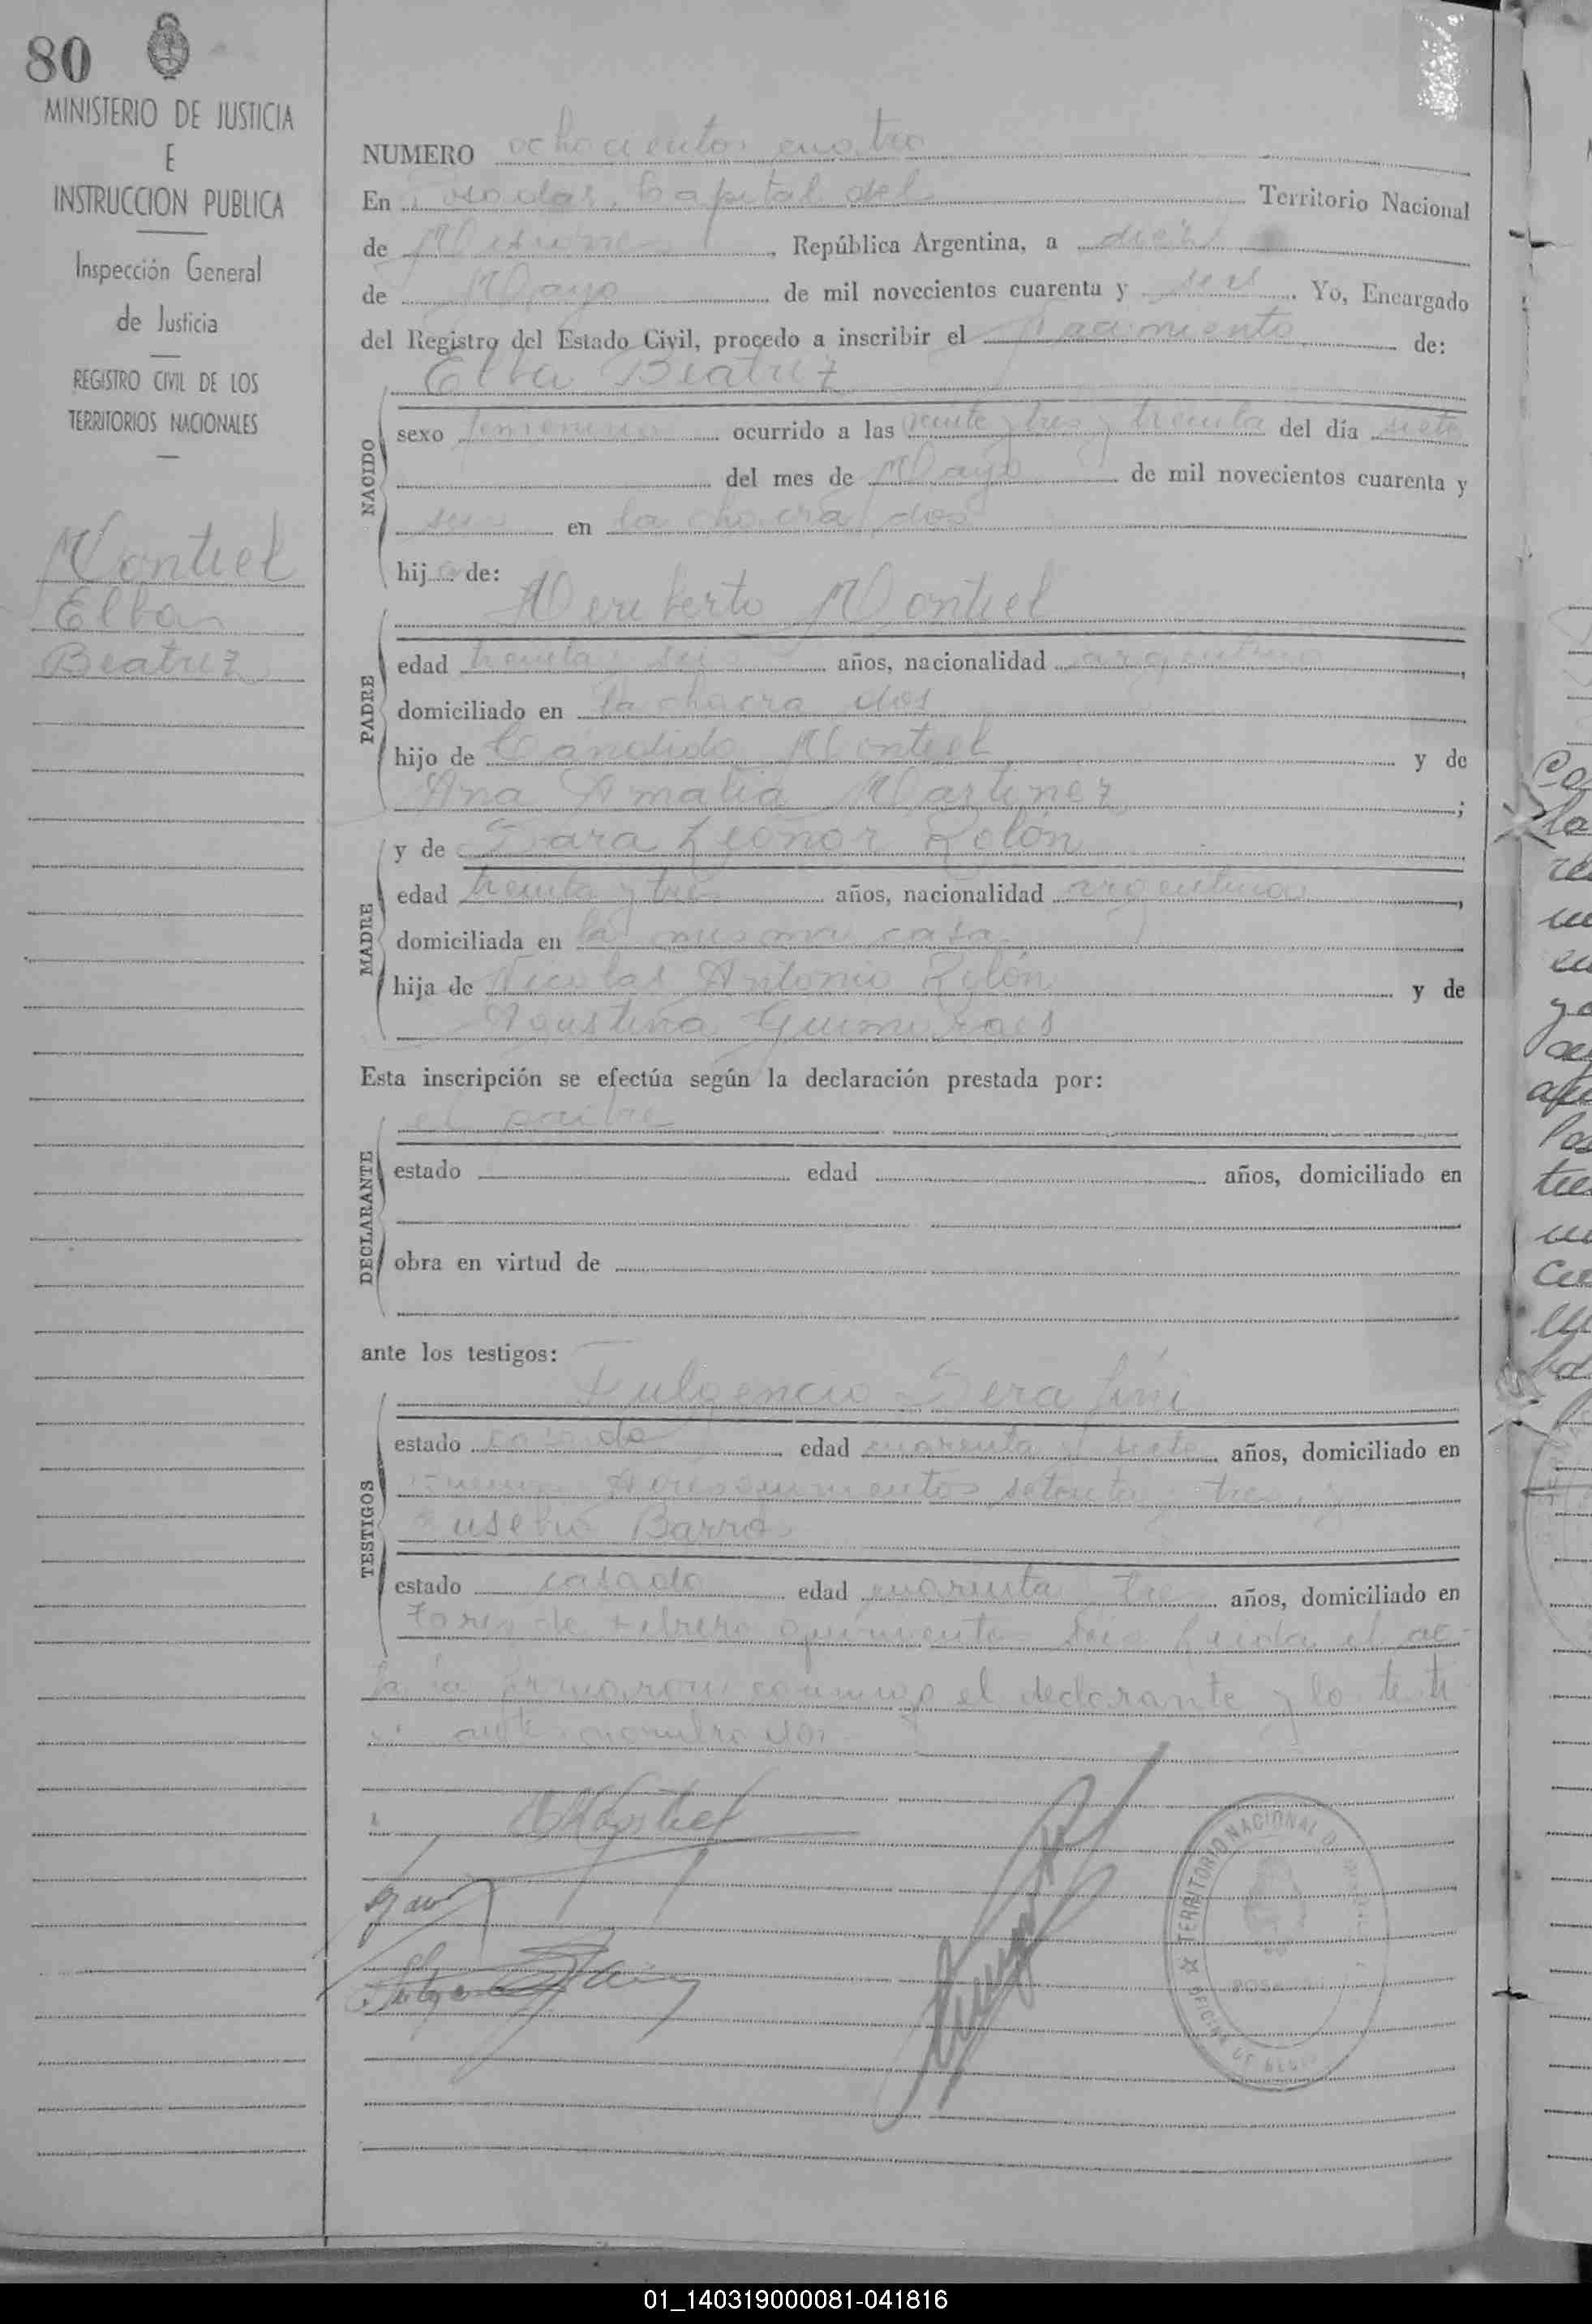 80
MINISTERIO DE JUSTICIA
E
INSTRUCCION PUBLICA
Inspección General
de Justicia
REGISTRO CIVIL DE LOS
TERRITORIOS NACIONALES
Montiel
Elba
Beatriz
NUMERO ochocientos cuatro
En Posadas, Capital del Territorio Nacional
de Misiones, República Argentina, a diez
de Mayo de mil novecientos cuarenta y seis. Yo, Encargado
del Registro del Estado Civil, procedo a inscribir el Nacimiento de:
Elba Beatriz
NACIDO
sexo femenino ocurrido a las veinte y tres y treinta del día siete
del mes de Mayo de mil novecientos cuarenta y
seis en la chacra dos
hija de:
Heriberto Montiel
PADRE
edad treinta y seis años, nacionalidad argentino,
domiciliado en la chacra dos
hijo de Candido Montiel y de
Ana Amalia Martinez;
MADRE
y de Sara Leonor Rolón
edad treinta y tres años, nacionalidad argentina,
domiciliada en la misma casa
hija de Nicolas Antonio Rolón y de
Agustina Guimaraes
Esta inscripción se efectúa según la declaración prestada por:
el padre
DECLARANTE
estado edad años, domiciliado en
obra en virtud de
ante los testigos:
Fulgencio Serafini
TESTIGOS
estado casado edad cuarenta y siete años, domiciliado en
Buenos Aires quinientos setenta y tres, y
Eusebio Barrios
estado casado edad cuarenta y tres años, domiciliado en
tres de Febrero quinientos seis Leida el ac-
ta la firmaron conmigo el declarante y los testi
TERRITORIO NACIONAL
OFICINA DE
01_140319000081-041816